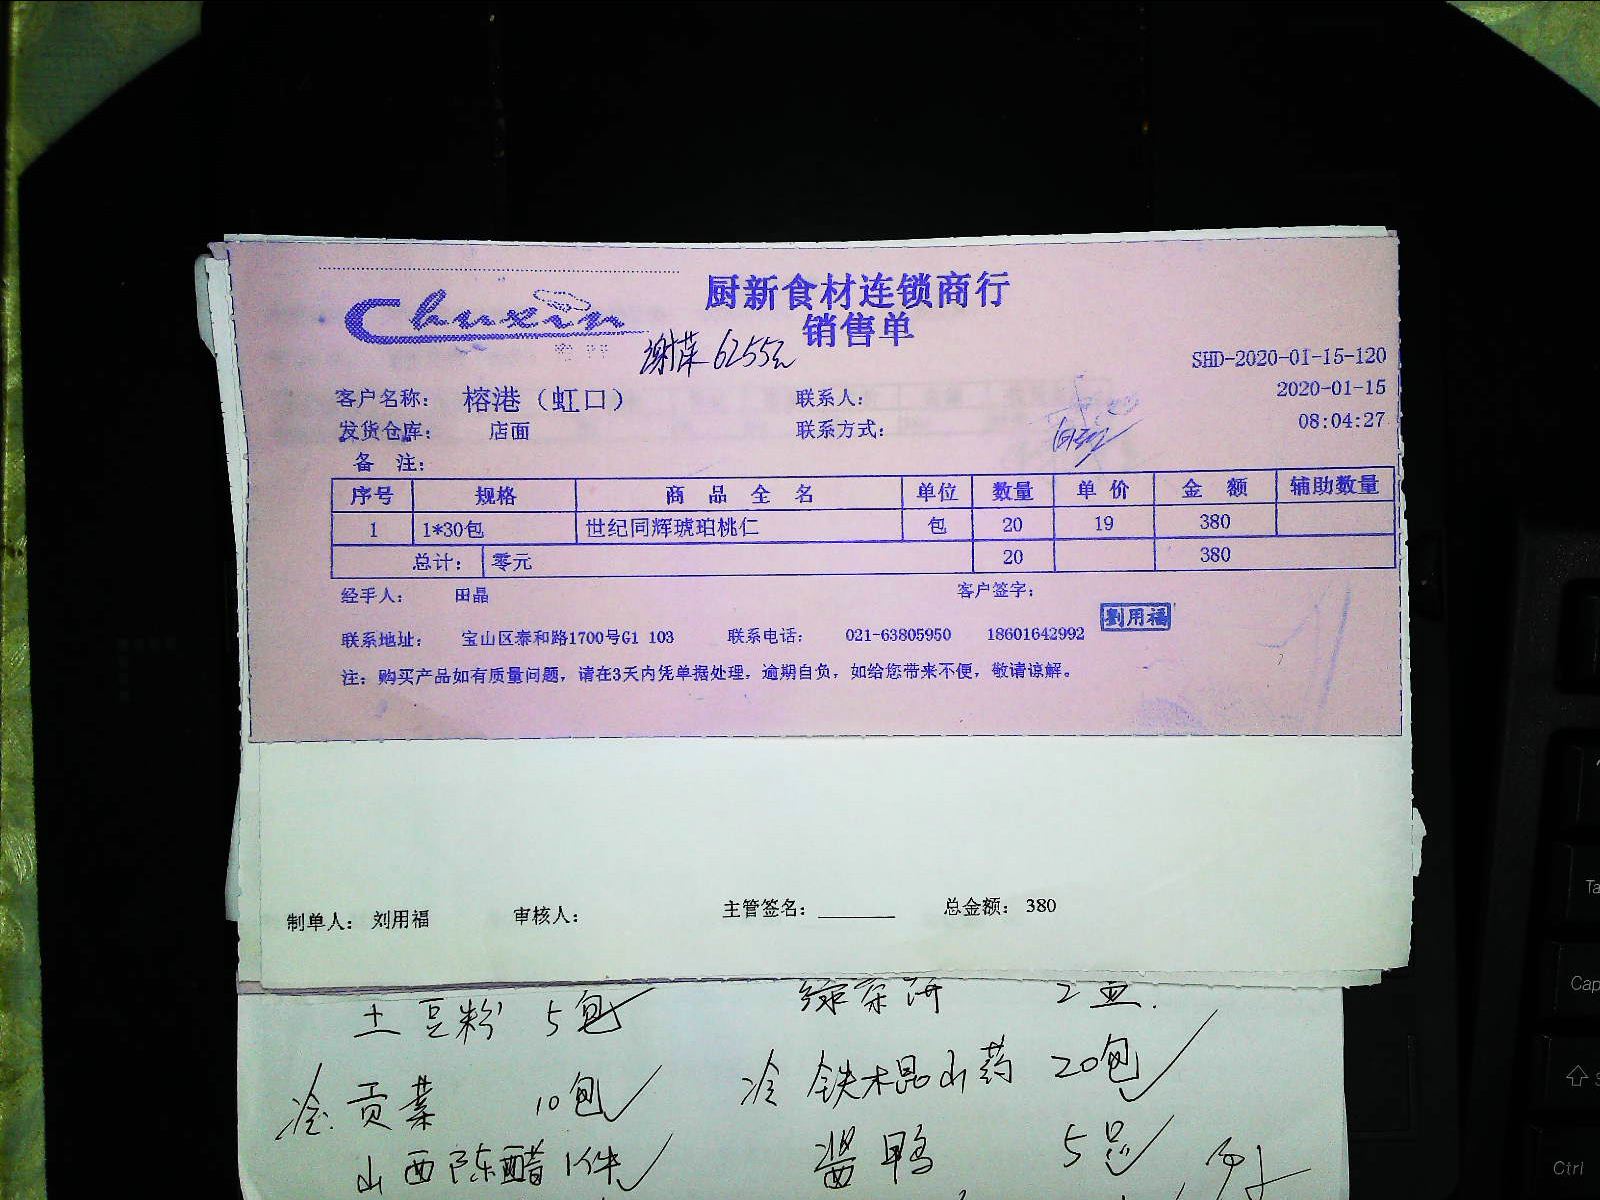 Chuxin
厨新食材连锁商行
销售单
6255元
SHD-2020-01-15-120
客户名称： 榕港（虹口） 联系人： 2020-01-15
发货仓库： 店面 联系方式： 08:04:27
备 注：
序号 规格 商品全名 单位 数量 单价 金额 辅助数量
1 1*30包 世纪同辉琥珀桃仁 包 20 19 380
总计： 零元 20 380
经手人： 田晶 客户签字：
劉用福
联系地址： 宝山区泰和路1700号G1 103 联系电话： 021-63805950 18601642992
注：购买产品如有质量问题，请在3天内凭单据处理，逾期自负，如给您带来不便，敬请谅解。
制单人： 刘用福 审核人： 主管签名：_______ 总金额： 380
土豆粉 5包 绿茶饼 2盒.
冷 贡菜 10包 冷 铁棍山药 20包
山西陈醋 1件 酱鸭 5只
Ta
Cap
Ctrl